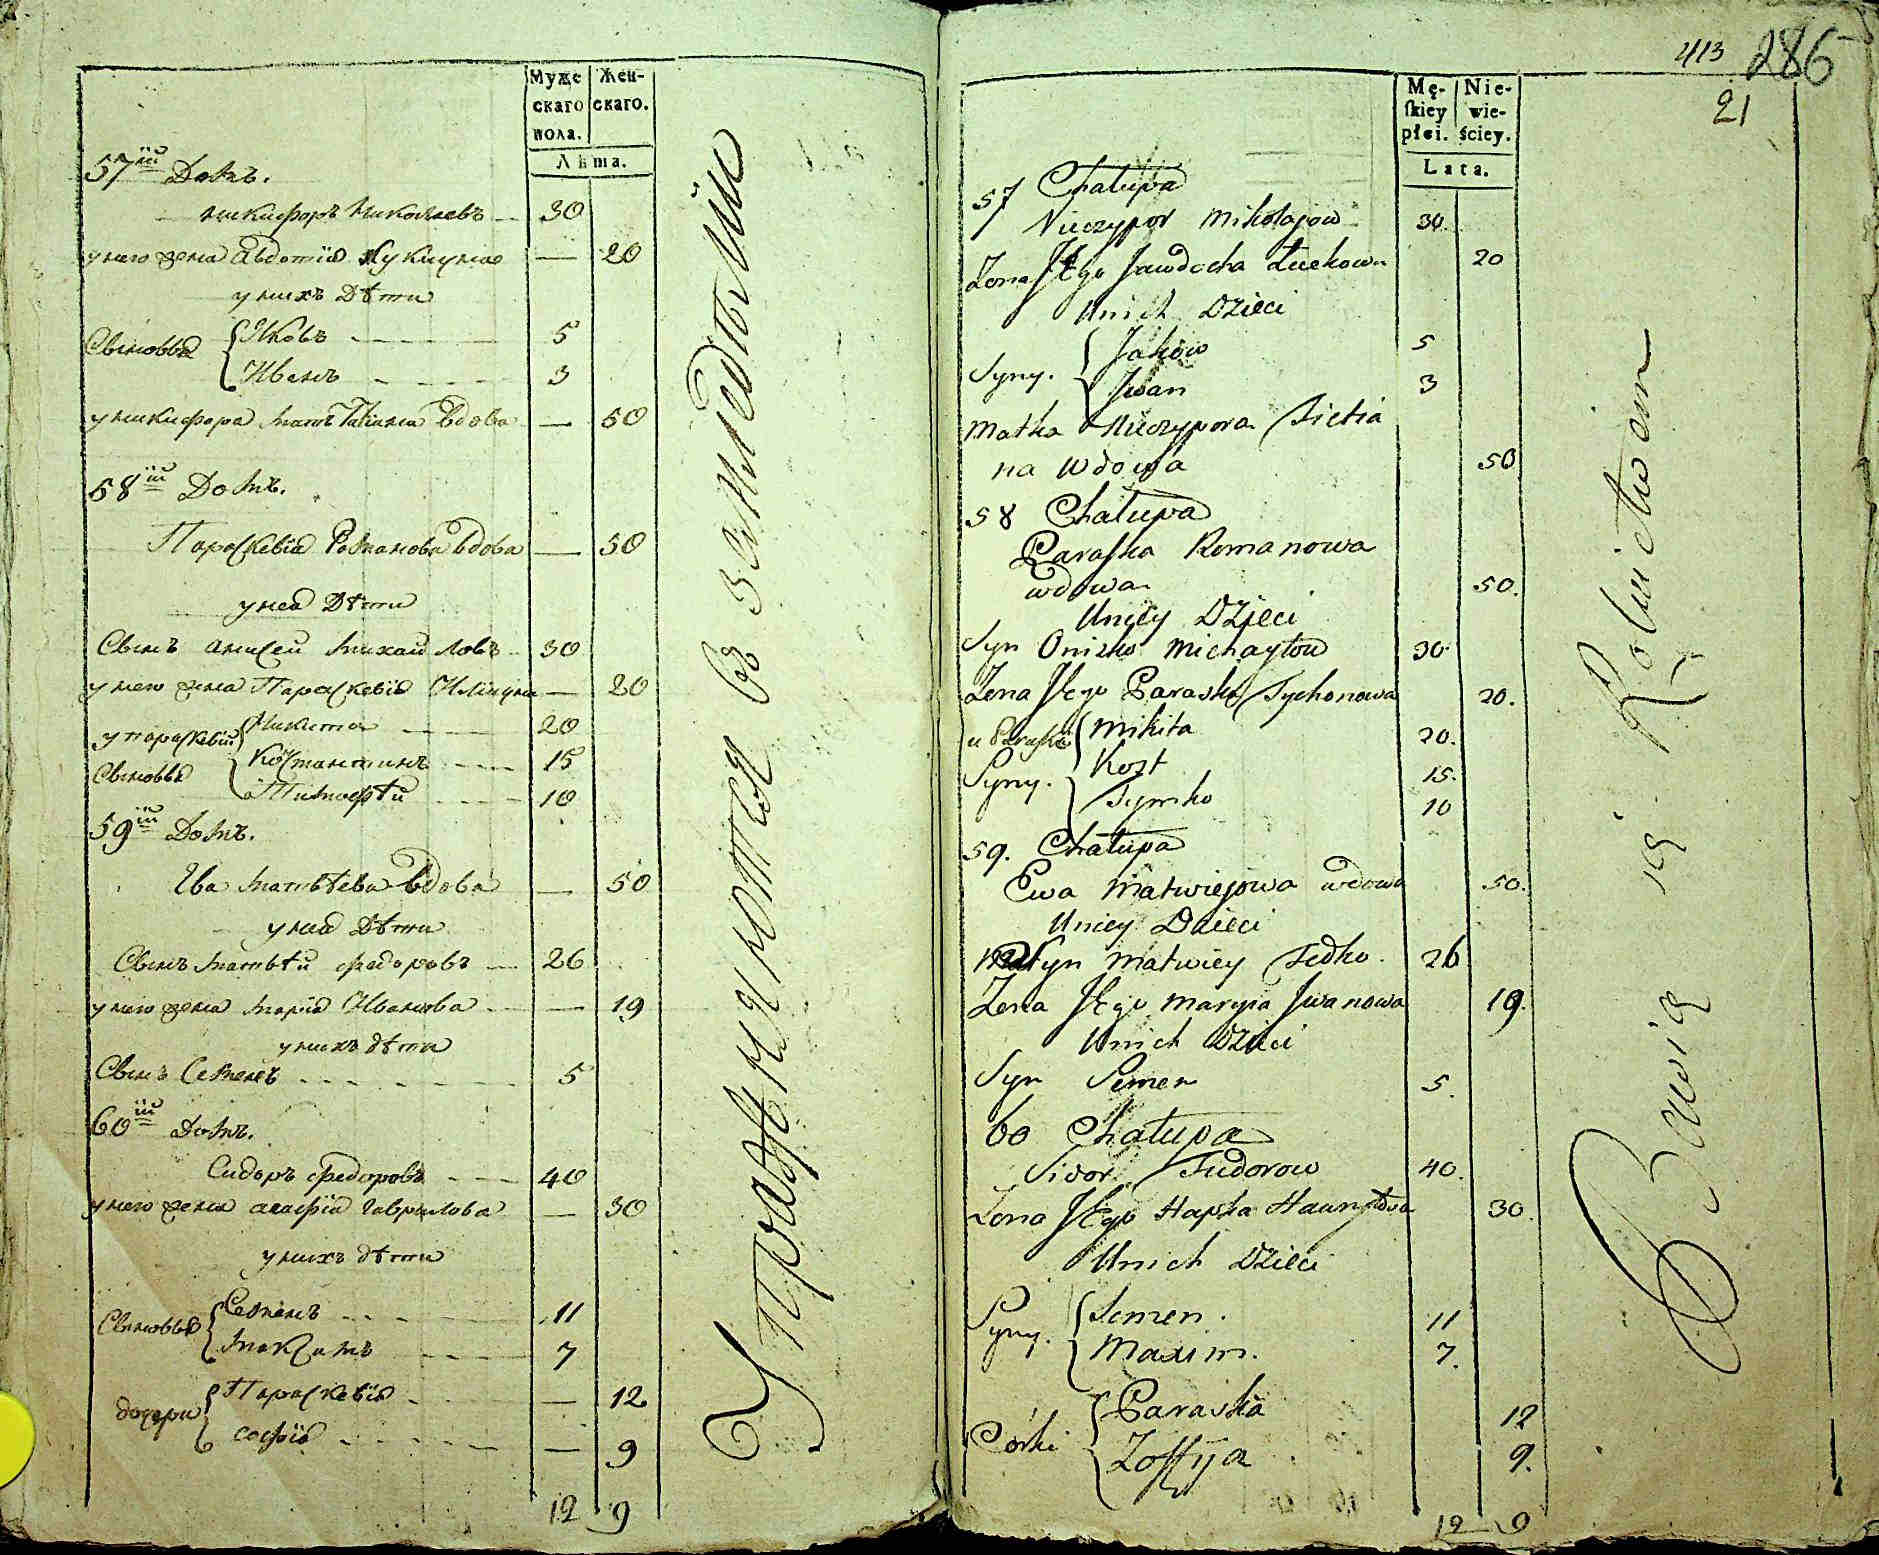 Муже скаго пола.
Жен- скаго.
Лѣта.
57й Домъ.
Никифоръ Николаевъ 30
у него жена Авдотія Лукична — 20
у нихъ Дѣти
Сыновья { Яковъ 5
Иванъ 3
у Никифора мать Татіана Вдова — 50
58й Домъ.
Параскевія Романова Вдова — 50
у нея Дѣти
Сынъ Анисей Михайловъ 30
у него жена Параскевія — 20
у Параскевіи { Никита 20
Сыновья Костантинъ 15
Тимофѣй 10
59й Домъ.
Ева Матвѣева Вдова — 50
у нея Дѣти
Сынъ Матвѣй Федоровъ 26
у него жена Марія Иванова — 19
у нихъ дѣти
Сынъ Семенъ 5
60й Домъ.
Сидоръ Федоровъ 40
у него жена Агафія Гаврылова — 30
у нихъ дѣти
Сыновья { Семенъ 11
Максимъ 7
дочери { Параскевія — 12
Софія — 9
12 9
Упражняются в земледѣліи
413 286
21
Mę- skiey płei.
Nie- wie- ściey.
Lata.
57 Chałupa
Niczypor Mikołajow 30.
Zona Jego Jawdocha Łuckowa 20
U nich Dzieci
Syny. { Jakow 5
Jwan 3
Matka Niczypora Tietia
na wdowa 50
58 Chałupa
Paraska Romanowa
wdowa 50.
U niey Dzieci
Syn Onisko Michayłow 30.
Zena Jego Paraska Tychonowa 20.
u Paraski { Mikita 20.
Syny. Kost 15.
Tymko 10
59. Chałupa
Ewa Matwiejowa wdowa 50.
U niey Dzieci
Syn Matwiey Fedko. 26
Zena Jego Maryia Jwanowa 19.
U nich Dzieci
Syn Semen 5.
60 Chałupa
Sidor Fudorow 40.
Zona Jego Hapka 30.
U nich Dzieci
Syny. { Semen. 11
Maxim. 7.
Córki { Paraska 12
Zoffija 9.
12 9
Bawią się Rolnictwem